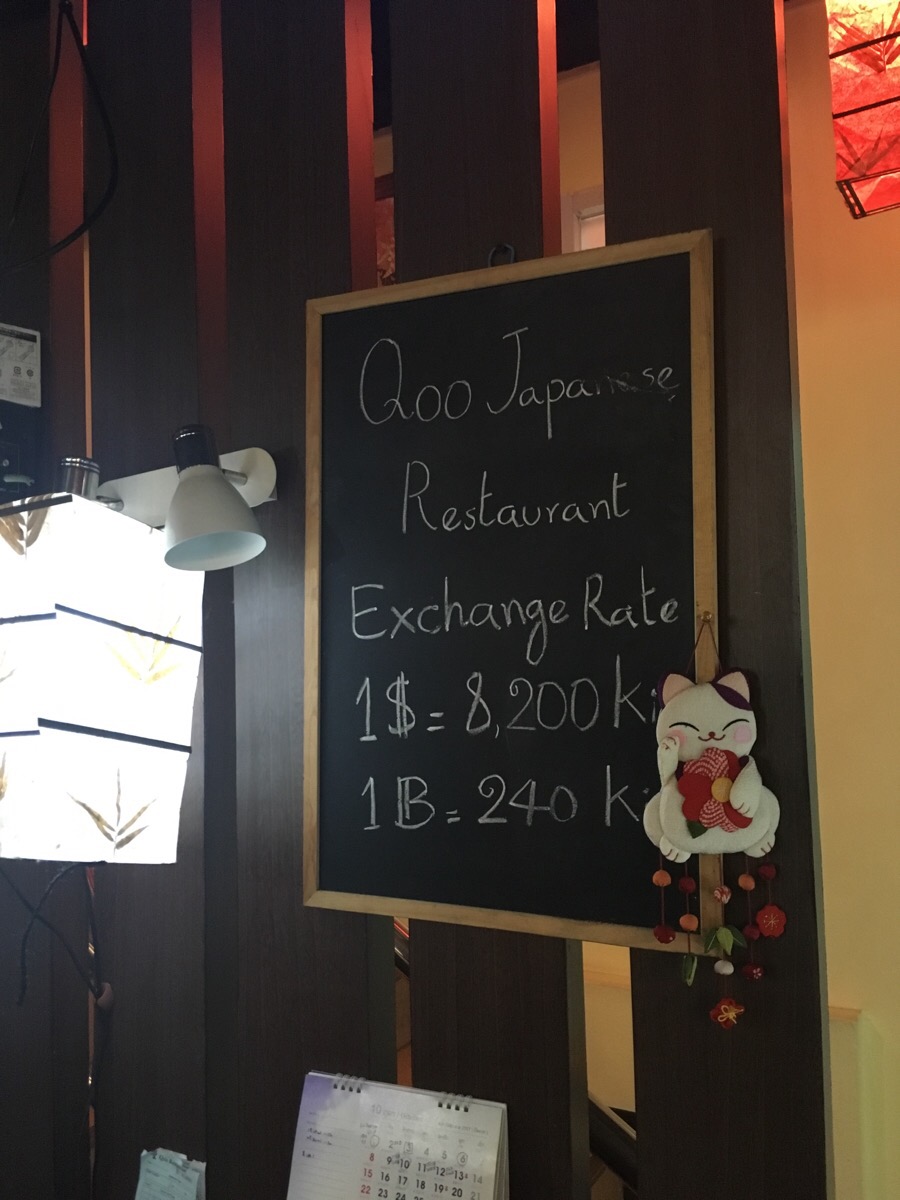 Qoo Japanese
Restaurant
Exchange Rate
1$ = 8,200 ki
1B = 240 ki
10
4 5 6
8 9 10 11 12 13 14
15 16 17 18 19 20 21
22 23 24 25